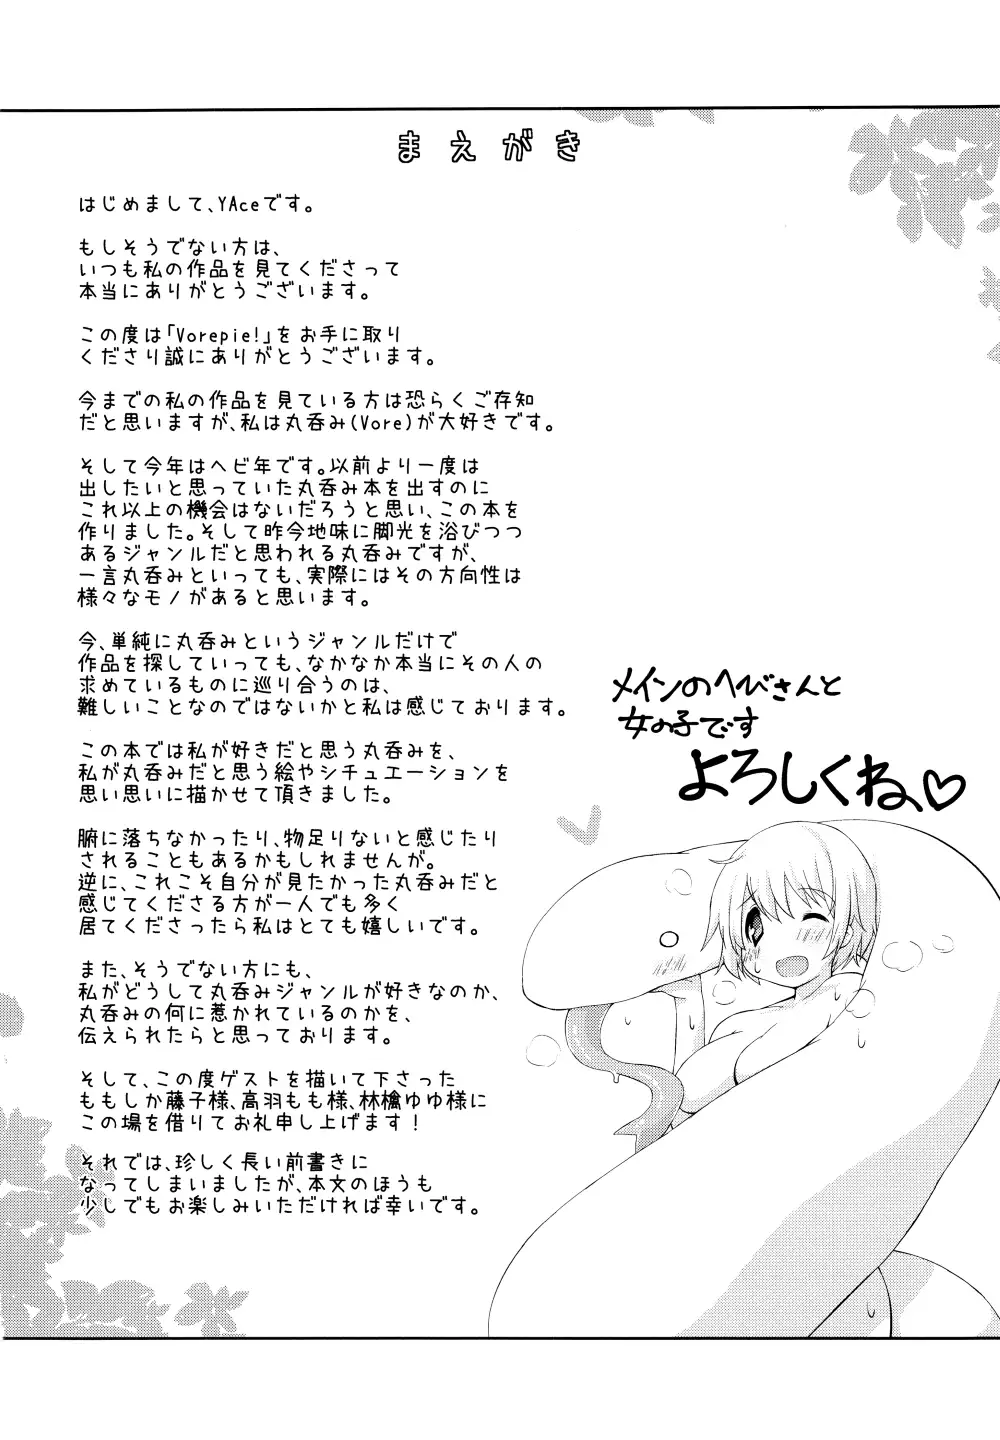 まえがき
はじめまして、YAceです。
もしそうでない方は、
いつも私の作品を見てくださって
本当にありがとうございます。
この度は「Vorepie!」をお手に取り
くださり誠にありがとうございます。
今までの私の作品を見ている方は恐らくご存知
だと思いますが、私は丸呑み(Vore)が大好きです。
そして今年はヘビ年です。以前より一度は
出したいと思っていた丸呑み本を出すのに
これ以上の機会はないだろうと思い、この本を
作りました。そして昨今地味に脚光を浴びつつ
あるジャンルだと思われる丸呑みですが、
一言丸呑みといっても、実際にはその方向性は
様々なモノがあると思います。
今、単純に丸呑みというジャンルだけで
作品を探していっても、なかなか本当にその人の
求めているものに巡り合うのは、
難しいことなのではないかと私は感じております。
この本では私が好きだと思う丸呑みを、
私が丸呑みだと思う絵やシチュエーションを
思い思いに描かせて頂きました。
腑に落ちなかったり、物足りないと感じたり
されることもあるかもしれませんが。
逆に、これこそ自分が見たかった丸呑みだと
感じてくださる方が一人でも多く
居てくださったら私はとても嬉しいです。
また、そうでない方にも、
私がどうして丸呑みジャンルが好きなのか、
丸呑みの何に惹かれているのかを、
伝えられたらと思っております。
そして、この度ゲストを描いて下さった
ももしか藤子様、高羽もも様、林檎ゆゆ様に
この場を借りてお礼申し上げます!
それでは、珍しく長い前書きに
なってしまいましたが、本文のほうも
少しでもお楽しみいただければ幸いです。
メインのへびさんと
女の子です
よろしくね、♡